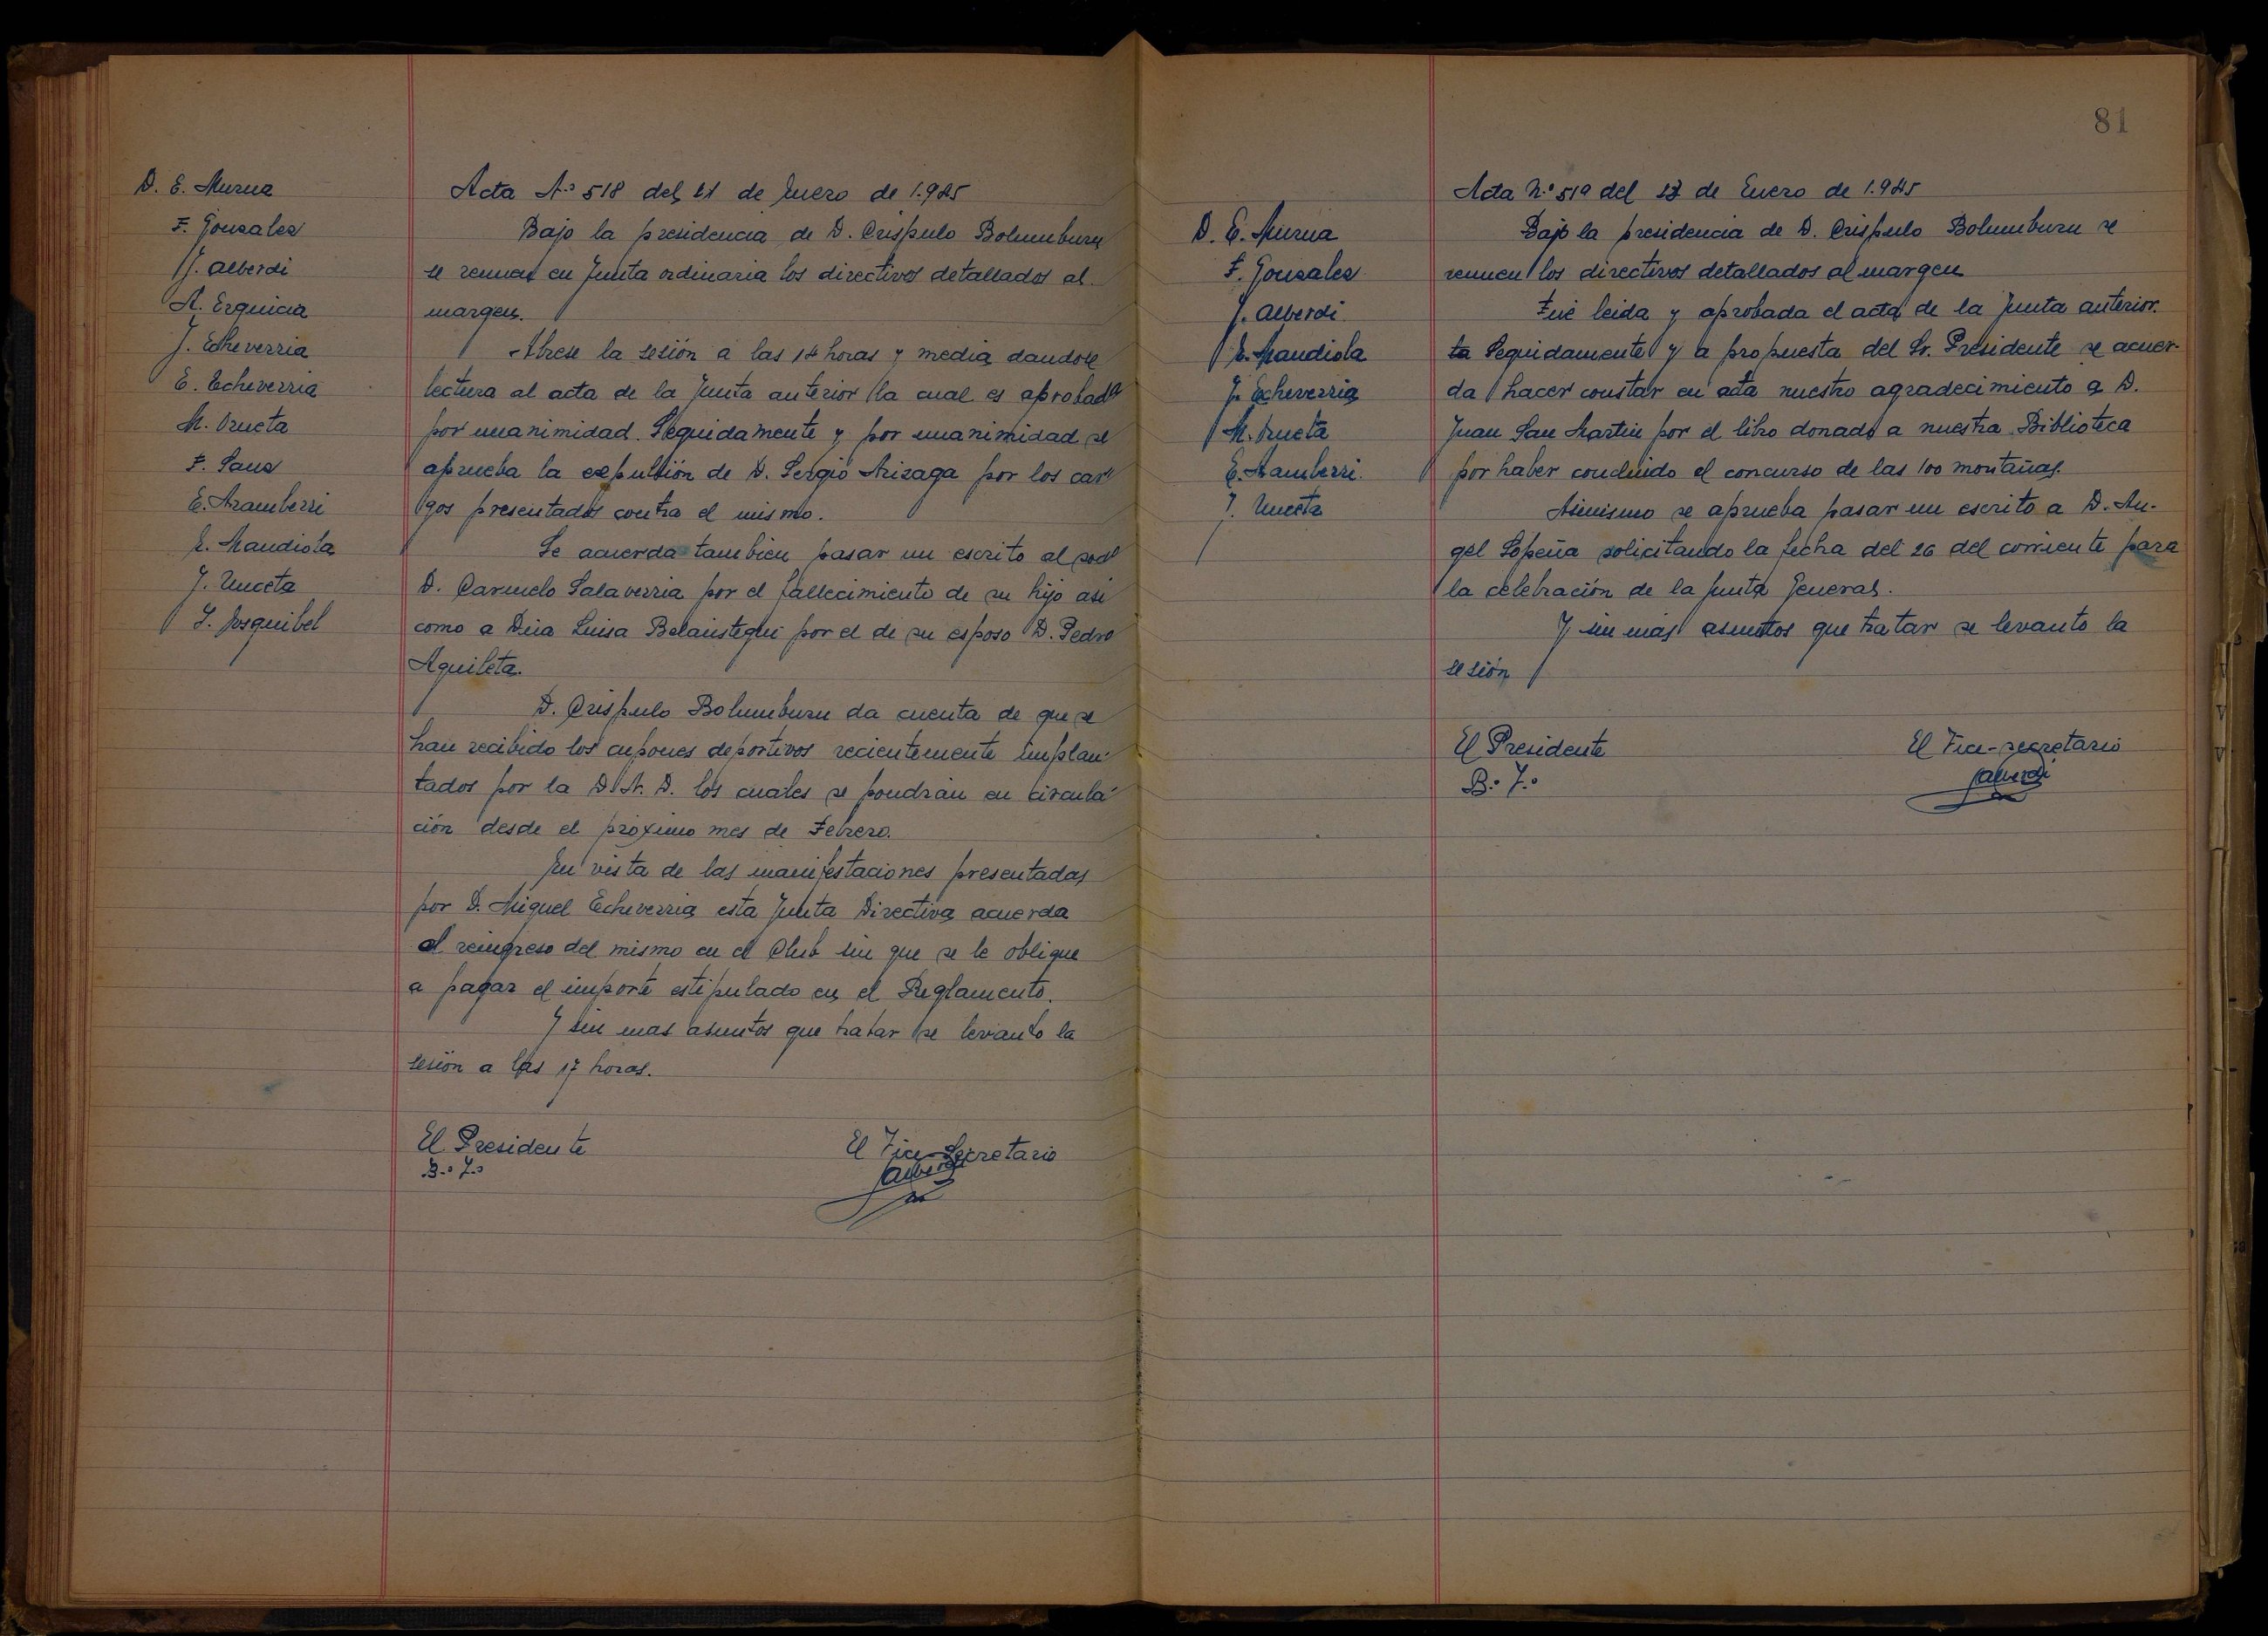 D. E. Murua
F. Gonzalez
J. Alberdi
A. Ezquicia
J. Echeverria
E. Echeverria
M. Orueta
F. Sanz
E. Aramberri
E. Mandiola
J. Unceta
J. Yosquibel
Acta Nº 518 del 11 de Enero de 1.945
Bajo la presidencia de D. Crispulo Bolumburu
se reunen en Junta ordinaria los directivos detallados al
margen.
Abrese la sesión a las 14 horas y media dandose
lectura al acta de la Junta anterior la cual es aprobada
por unanimidad. Seguidamente y por unanimidad se
aprueba la expulsión de D. Sergio Arizaga por los car-
gos presentados contra el mismo.
Se acuerda tambien pasar un escrito al socio
D. Carmelo Salaverria por el fallecimiento de su hijo asi
como a Dña Luisa Belaustegui por el de su esposo D. Pedro
Aguileta.
D. Crispulo Bolumburu da cuenta de que se
han recibido los cupones deportivos recientemente implan-
tados por la D.N.D. los cuales se pondrán en circula-
ción desde el próximo mes de Febrero.
En vista de las manifestaciones presentadas
por D. Miguel Echeverria esta Junta Directiva acuerda
el reingreso del mismo en el Club sin que se le oblique
a pagar el importe estipulado en el Reglamento.
Y sin mas asuntos que tratar se levanto la
sesión a las 17 horas.
El Presidente
B.º V.º
El Vice-Secretario
Jalberdi
81
D. E. Murua
F. Gonzalez
J. Alberdi
E. Mandiola
J. Echeverria
M. Orueta
E. Aramberri.
J. Unceta
Acta N.º 519 del 13 de Enero de 1.945
Bajo la presidencia de D. Crispulo Bolumburu se
reunen los directivos detallados al margen
Fué leida y aprobada el acta de la Junta anterior.
ta Seguidamente y a propuesta del Sr. Presidente se acuer-
da hacer constar en acta nuestro agradecimiento a D.
Juan San Martin por el libro donado a nuestra Biblioteca
por haber concluido el concurso de las 100 montañas.
Asimismo se aprueba pasar un escrito a D. An-
gel Sopeña solicitando la fecha del 26 del corriente para
la celebración de la Junta General.
Y sin mas asuntos que tratar se levanto la
sesión
El Presidente
B.º V.º
El Vice-secretario
Jalberdi